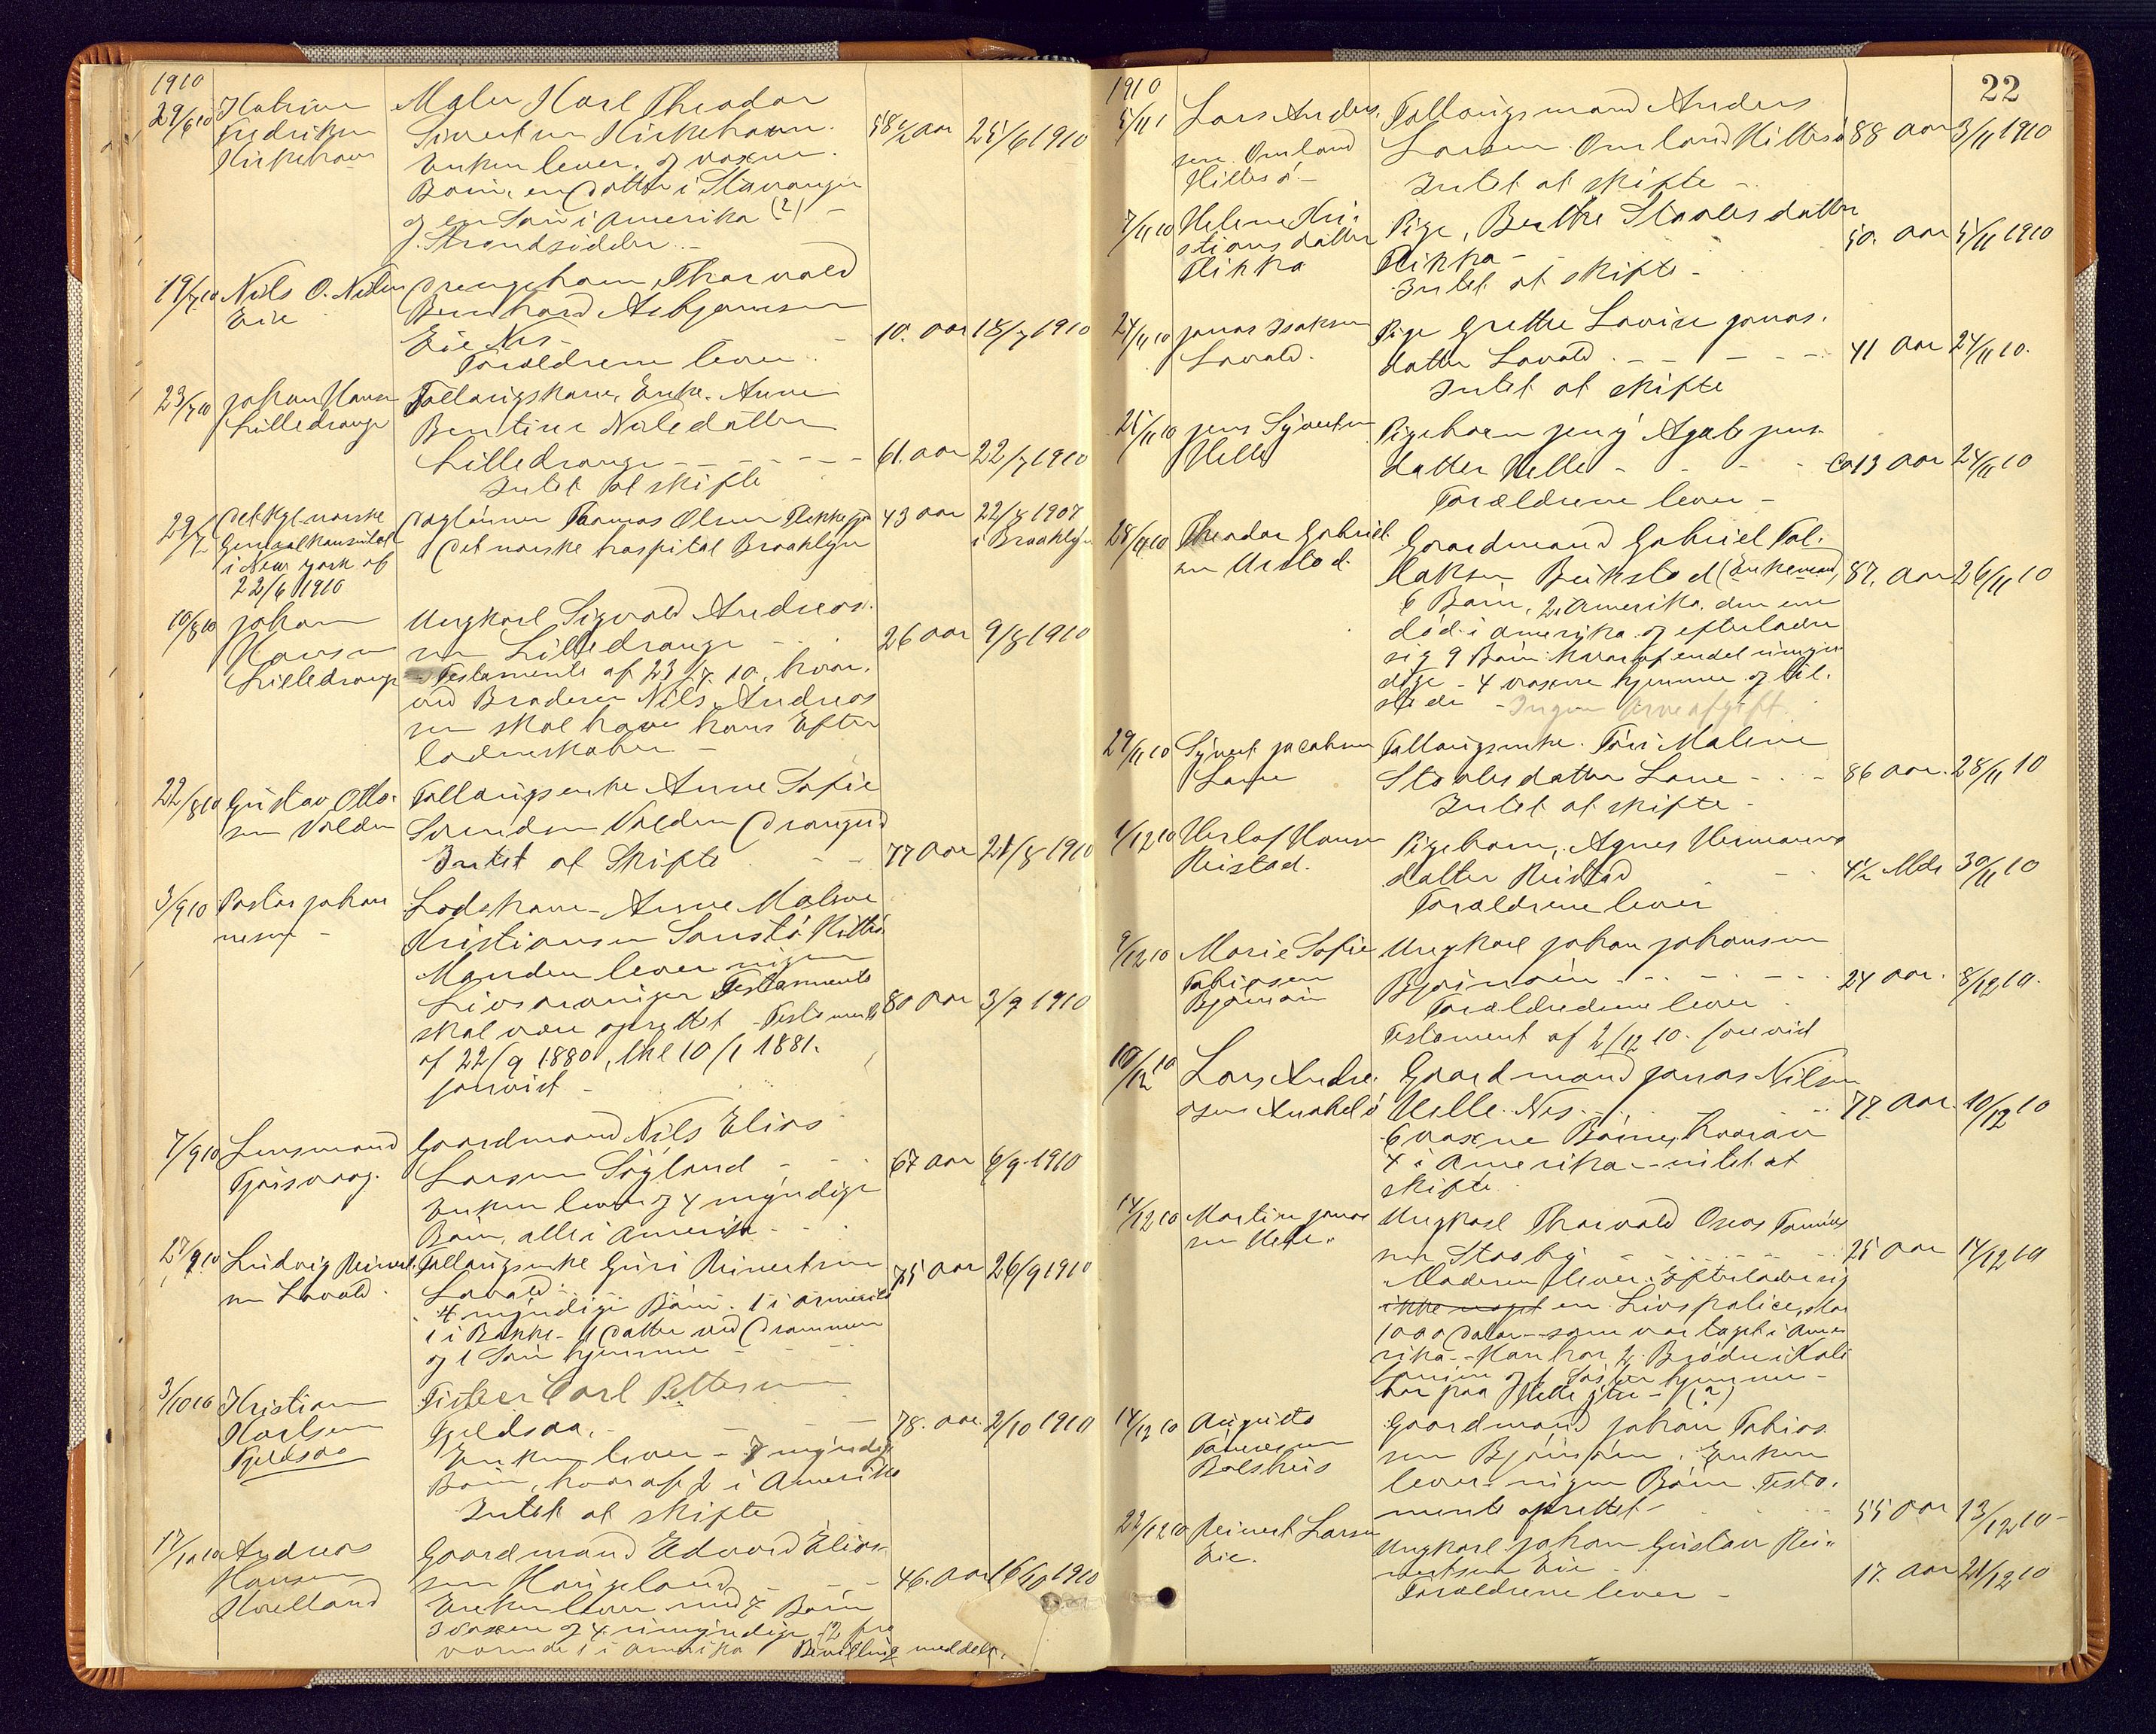 1910
29/6 10 Katrine Fredriksen Kirkehavn
Maler Karl Theodor
Sivertsen Kirkehavn.
Enken lever, og voxne
Børn, en Datter i Stavanger
og en Søn i Amerika (?) -
Strandsidder -
58 1/2 aar 25/6 1910
19/7 10 Nils O. Nilsen Eie
Drengebarn, Thorvald
Bernhard Asbjørnsen
Eie Nes -
Forældrene lever
10. aar 18/7 1910
23/7 10 Johan Hansen Lilledrange
Follaugskone, Enke. Anne
Bentine Nilsdatter
Lilledrange - - - -
Intet at skifte
61. aar 22/7 1910
29/7 Det kgl. norske Generalkonsulat i New York af 22/6 1910
Daglønner Thomas Olsen Flekkefjo
Det norske hospital Brooklyn
43 aar 22/8 1907 i Brooklyn
10/8 10 Johan Hansen Lilledrange
Ungkarl Sigvald Andreas-
sen Lilledrange -
Testamente af 23/7. 10., hvor-
ved Broderen Nils Andreas
sen skal have hans Efter
ladenskaber -
26 aar 9/8 1910
22/8 10 Gustav Otto- sen Valden
Follaugsenke Anne Sofie
Svendsen Valden Drangeid
Intet at Skifte
77 aar 21/8 1910
3/9 10 Pastor Johan nesen -
Lodskone - Anne Malene
Kristiansen Sanstø Hitterø
Manden lever ingen
Livsarvinger Testamente
skal være oprettet - Testamente
af 22/9 1880, thl 10/1 1881.
forevist -
80 aar 3/9 1910
7/9 10 Lensmand Tjørsvaag.
Gaardmand Nils Elias
Larsen Søgland - -
Enken lever og 4 myndige
Børn, alle i Amerika -
67 aar 6/9. 1910
27/9 10 Ludvig Reinert- sen Lavold.
Follaugsenke Guri Reinertsen
Lavold
4 myndige Børn. 1 i Amerika
1 i Bakke - 1 Datter ved Drammen
og 1 Søn hjemme - -
75 aar 26/9 1910
3/10 10 Kristian Karlsen Fjeldsaa
Fisker Carl Pettersen
Fjeldsaa. - -
Enken lever - 7 myndige
Børn, hvoraf 2 i Amerika
Intet at skifte
78. aar 2/10 1910
17/10 10 Andreas Hansen Hvelland
Gaardmand Edvard Elias-
sen Haugeland - -
Enken lever med 7 Børn
3 voxne og 4 umyndige
1 i Amerika Bevilling meddelt.
46. aar 16/10 1910
22
1910
5/11 Lars Anders- sen Omland Hitterø -
Follaugsmand Anders
Larsen Omland Hitterø
Intet at skifte -
88 aar 3/11 1910
7/11 10 Helene Kri- stiansdatter Flikka
Pige, Berthe Staalesdatter
Flikka -
Intet at skifte -
50. aar 5/11 1910
24/11 10 Jonas Isaksen Lavold.
Pige Grethe Lovise Jonas-
datter Lavold - - - -
Intet at skifte
41 aar 24/11 10.
25/11 10 Jens Syvertsen Helle
Pigebarn Jeny Agate Jens-
datter Helle - - - -
Forældrene lever -
Ca 13 aar 24/11 10
28/11 10 Theodor Gabriel- sen Urstad.
Gaardmand Gabriel Tol-
laksen Beikstad (Enkemand)
6 Børn, 2 i Amerika, den ene
død i Amerika og efterlader
sig 9 Børn hvoraf endel umyn-
dige - 4 voxne hjemme og til-
stede - Ingen Arveafgift.
87. aar 26/11 10
29/11 10 Syvert Jacobsen Lone
Follaugsenke. Tøri Malene
Staalesdatter Lone - - -
Intet at skifte -
86 aar. 28/11 10
1/12 10 Herlof Hansen Reistad.
Pigebarn, Agnes Hermans
datter Reistad -
Forældrene lever
4 1/2 Mdr 30/11 10
9/12 10 Marie Sofie Tobiasen Bjørnsøn
Ungkarl Johan Johansen
Bjørnsøn - - - -
Forældrerne lever
Testament af 2/12 10. forevist
24 aar. 8/12 10.
10/12 10 Lars Andre- asen Anabelø
Gaardmand Jonas Nilsen
Helle. Nes. - -
6 voxne Børn, hvorav
4 i Amerika - intet at
skifte
77. aar. 10/12 10
14/12 10 Martin Jonas sen Helle.
Ungkarl Thorvald Oscar Tønnes
sen Stosby - - - -
Moderen lever. Efterlader sig
ikke noget en Livspolice, stor
1000 Dolar - som var taget i Ame-
rika - Han har 2 Brødre i Kali
fornien og 1 Søster hjemme -
bor paa Helle ytre - (?)
25 aar 14/12 10
14/12 10 Augusta Tønnesen Balshus
Gaardmand Johan Tobias
sen Bjørnsøn. Enken
lever - ingen Børn. Testa-
mente oprettet -
55 aar 13/12 10 -
22/12 10 Reinert Larsen Eie.
Ungkarl Johan Gustav Rei-
nertsen Eie -
Forældrene lever -
17. aar 21/12 10